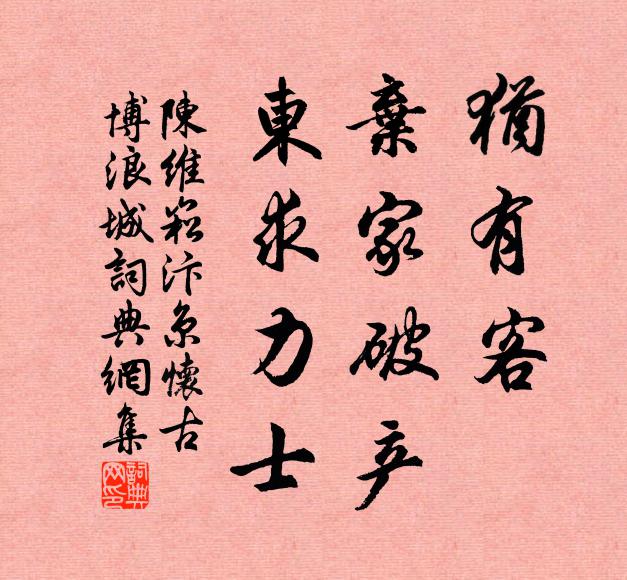 猶有客
棄家破产
東求力士
陳維崧汴京懷古
博浪城詞典網集
詞典網印